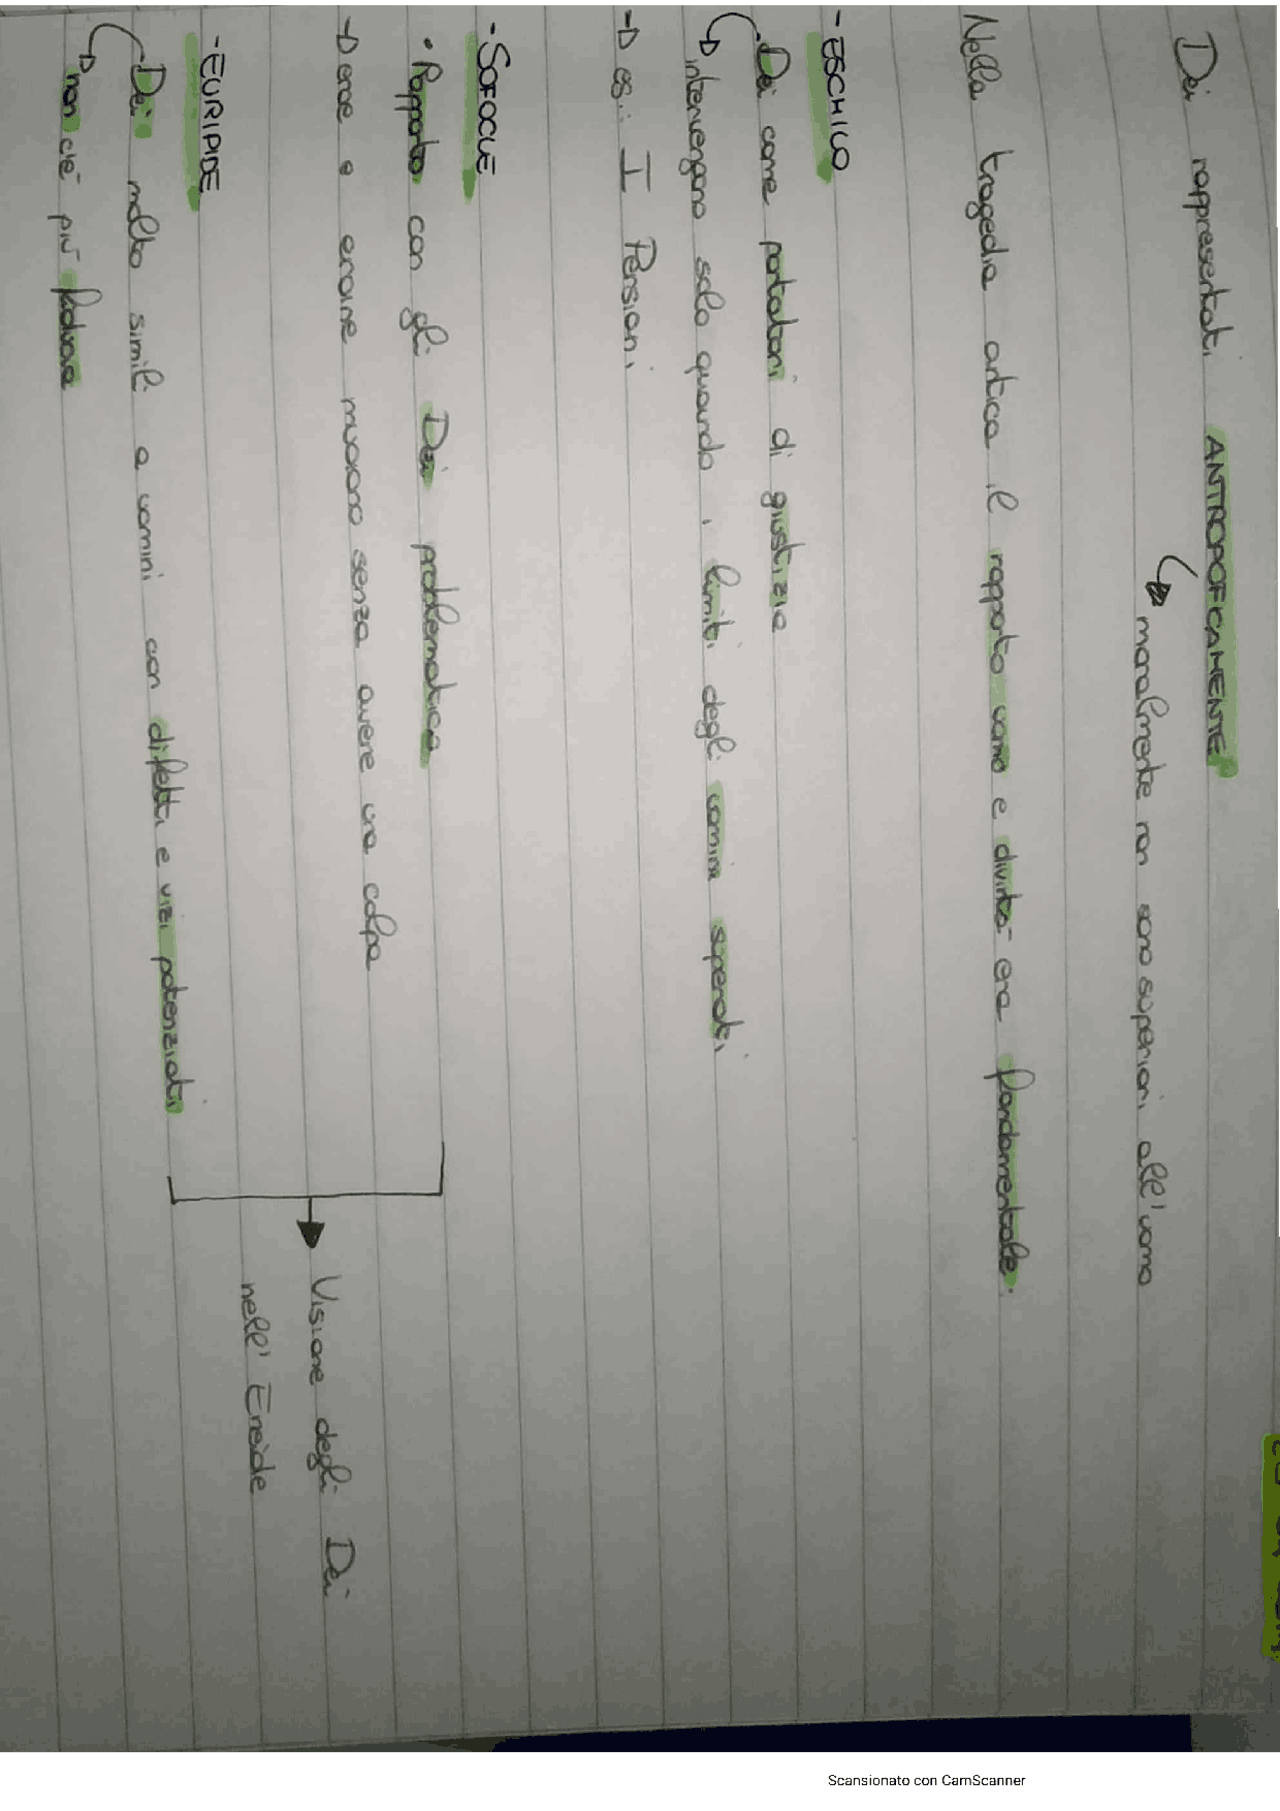 Dei rappresentati ANTROPOFICAMENTE
↳ moralmente non sono superiori all'uomo
Nella tragedia antica il rapporto uomo e divinità era fondamentale.
- ESCHILO
- Dei come portatori di giustizia
↳ intervengono solo quando i limiti degli uomini superati
→ es: I Persiani
- SOFOCLE
• Rapporto con gli Dei problematico
→ eroe e eroine muoiono senza avere una colpa
- EURIPIDE
- Dei molto simili a uomini con difetti e vizi potenziati
↳ non c'è più fiducia
→ Visione degli Dei
nell'Eneide
Scansionato con CamScanner